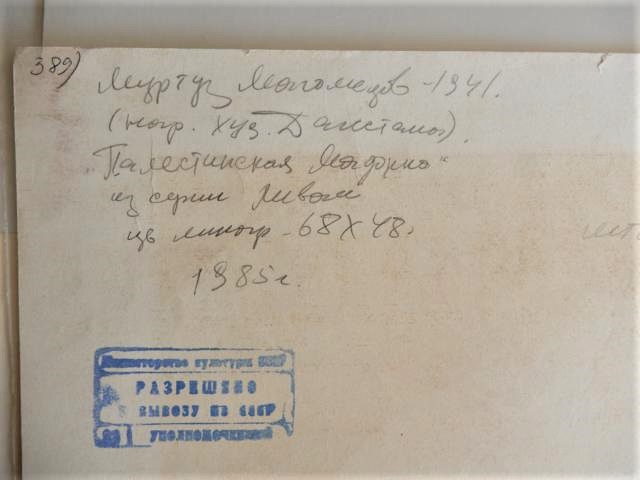 389)
Муртуз Магомедов - 1941.
(нар. худ. Дагестана).
"Палестинская Мадонна"
из серии Ливан
цв линогр - 68X48.
1985г.
Министерство культуры СССР
РАЗРЕШЕНО
К ВЫВОЗУ ИЗ СССР
УПОЛНОМОЧЕННЫЙ